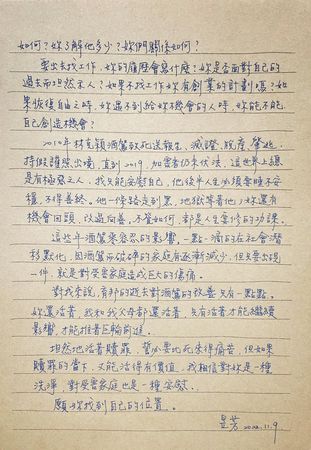 如何？妳了解他多少？妳們關係如何？
要出去找工作，妳的履歷會寫什麼？妳是否面對自己的
過去而坦然示人？如果不找工作妳有創業的計劃嗎？如
果恢復自由之時，妳遇不到給妳機會的人時，妳能不能
自己創造機會？
2010年林克穎酒駕致死送報生，滅證、脫產、聲逃，
持假護照出境，直到2019，加害者仍未伏法，這世界上總
是有極惡之人，我只能安慰自己，他後半人生必須寢睡不安
穩，不得善終。他一條路走到黑，地獄等著他；妳還有
機會回頭，改過向善，不管如何，都是人生當修的功課。
這些年酒駕零容忍的影響，一點一滴的在社會潛
移默化，因酒駕而破碎的家庭有逐漸減少，但只要出現
一件，就是對受害家庭造成巨大的傷痛。
對我來說，有邦的逝去對酒駕的改善只有一點點。
妳還活著，我和我父母都還活著，只有活著才能繼續
影響，才能推著巨輪前進。
坦然地活著贖罪，當然要比死來得痛苦，但如果
贖罪的當下，又能活得有價值，我相信對妳是一種
洗淨，對受害家庭也是一種安慰。
願妳找到自己的位置。
昱芳 2022.11.9